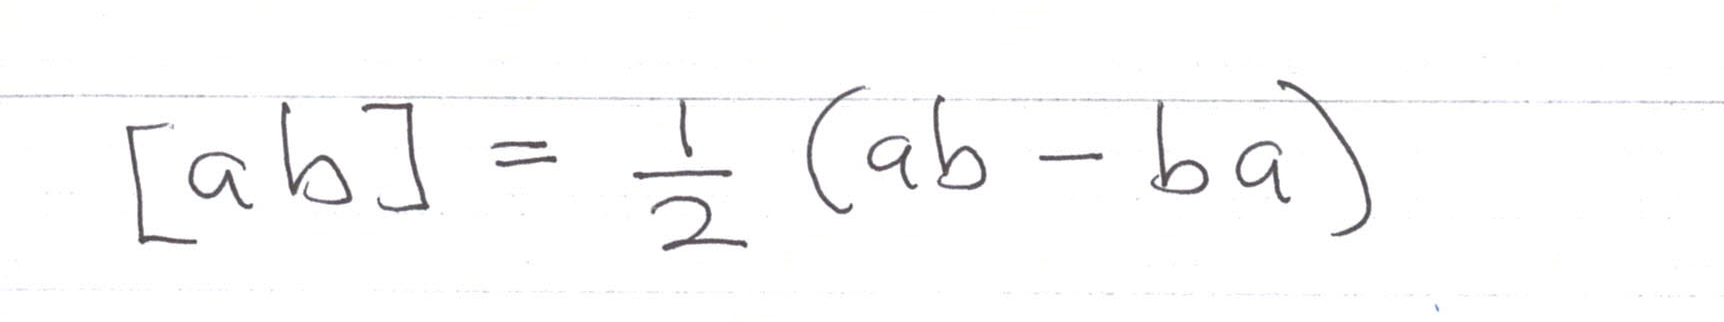 [ab] = 1/2 (ab - ba)